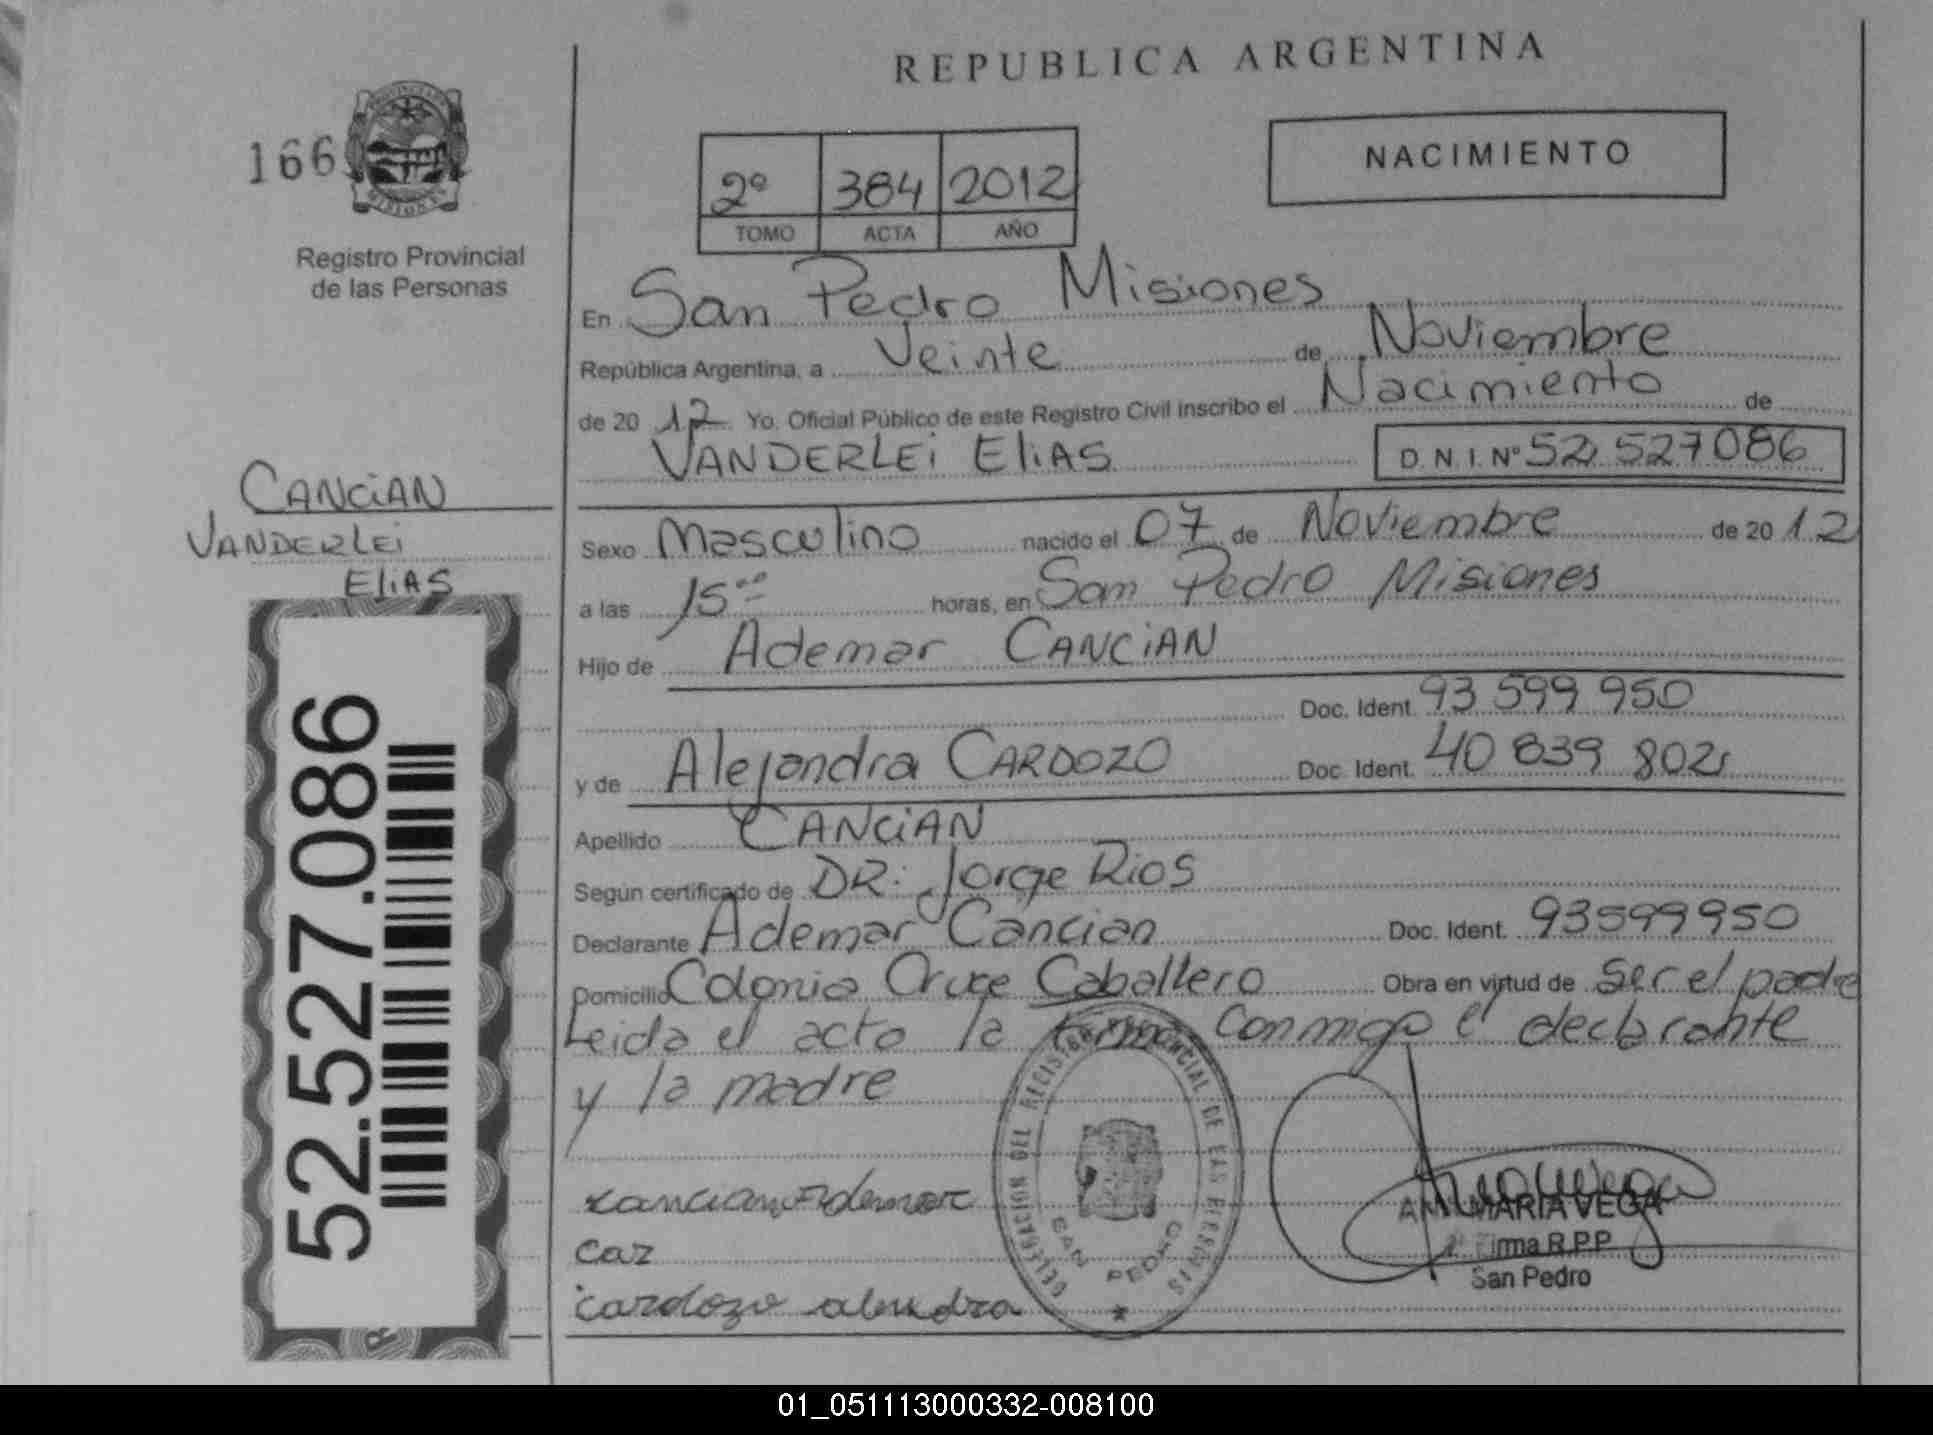 REPUBLICA ARGENTINA
166
PROVINCIA DE
MISIONES
Registro Provincial
de las Personas
2º 384 2012
TOMO ACTA AÑO
NACIMIENTO
En San Pedro Misiones
República Argentina, a Veinte de Noviembre
de 20 12 Yo. Oficial Público de este Registro Civil inscribo el Nacimiento de
VANDERLEi EliAS D.N.I. Nº 52 527086
CANCiAN
VANDERLEi
EliAS
Sexo Masculino nacido el 07 de Noviembre de 20 12
a las 15ºº horas, en San Pedro Misiones
Hijo de Ademar CANCiAN
Doc. Ident. 93 599 950
y de Alejandra CARDOZO Doc. Ident. 40 839 802
Apellido CANCiAN
Según certificado de DR: Jorge Rios
Declarante Ademar Cancian Doc. Ident. 93599950
Domicilio Colonia Cruce Caballero Obra en virtud de Ser el padre
Leida el acta la firma conmigo el declarante
y la madre
cancian Ademar
caz
cardozo alendra
DELEGACION DEL REGISTRO PROVINCIAL DE LAS PERSONAS
SAN PEDRO
ANA MARIA VEGA
Firma R.P.P
San Pedro
52.527.086
01_051113000332-008100